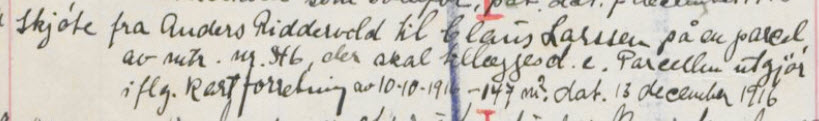 Skjøte fra Anders Ridderveld til Claus Larssen på en parcel
av mtr. nr. 46, der skal tillegges d. e. Parcellen utgjør
iflg. kartforretning av 10-10-1916 - 147 m². dat. 13 december 1916